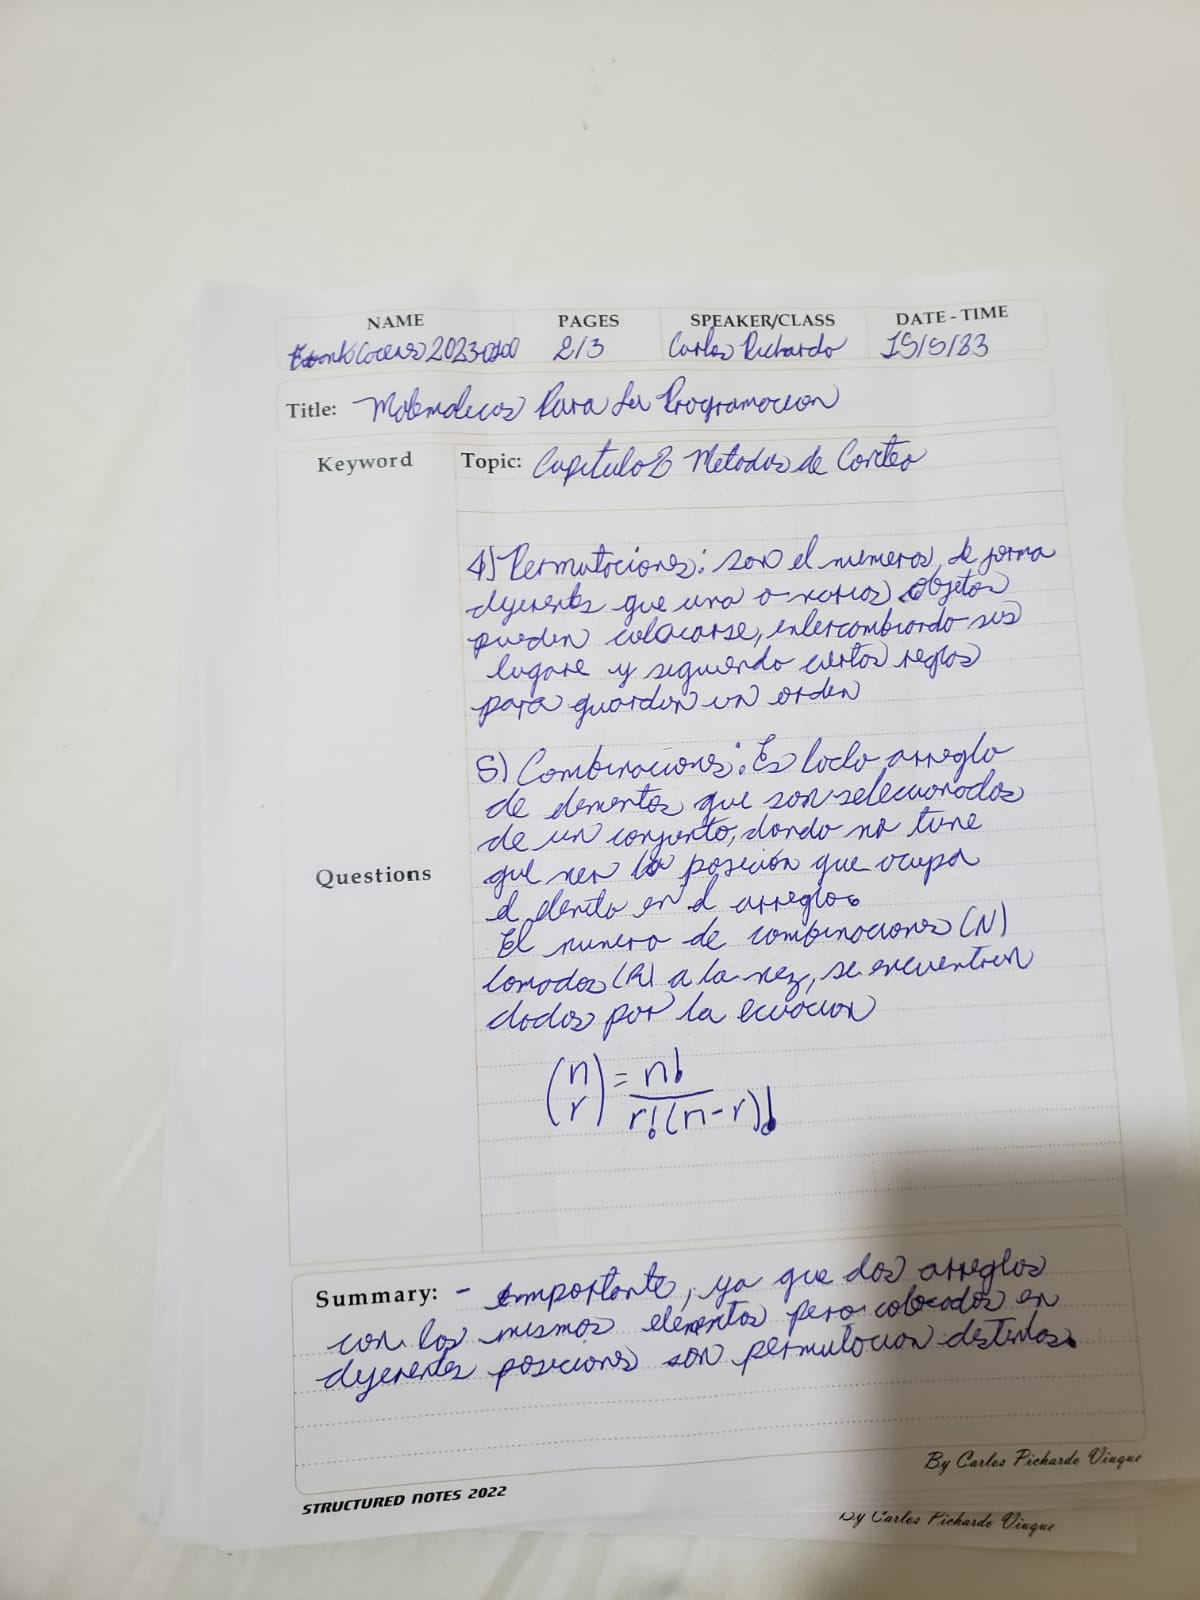 NAME PAGES SPEAKER/CLASS DATE - TIME
2023-0100 2/3 Carlos Pichardo 15/5/23
Title: Matematicas Para La Programacion
Keyword Topic: Capitulo 2 Metodos de Conteo
4) Permutaciones: son el numeros de forma
diferentes que una o varios objetos
pueden colocarse, intercambiando sus
lugare y siguiendo ciertas reglas
para guardan un orden
5) Combinaciones: Es todo arreglo
de elementos que son seleccionados
de un conjunto, dondo no tiene
Questions que ver la posición que ocupa
el elento en el arreglo.
El numero de combinaciones (N)
tomados (R) a la vez, se encuentren
dados por la ecuacion
(n r) = n! / r!(n-r)!
Summary: - importante, ya que dos arreglos
con los mismos elementos pero colocados en
diferentes posiciones son permutacion distintas.
By Carlos Pichardo Viuque
STRUCTURED NOTES 2022
By Carlos Pichardo Viuque